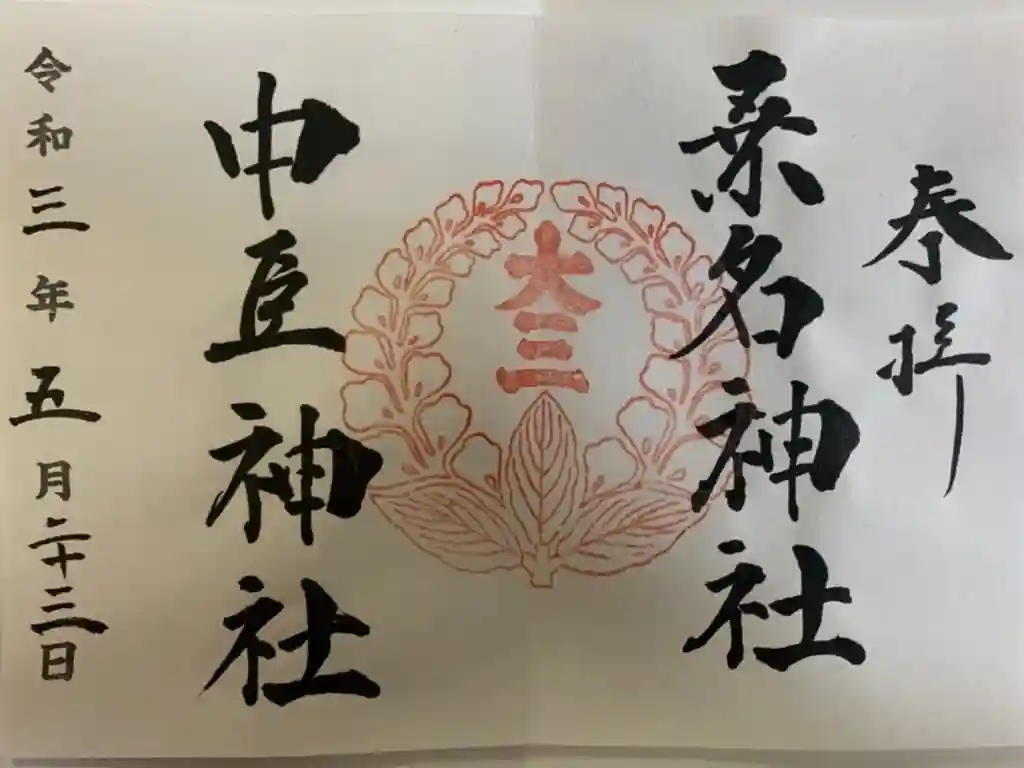 奉拝
桑名神社
大
三
中臣神社
令和三年五月二十三日